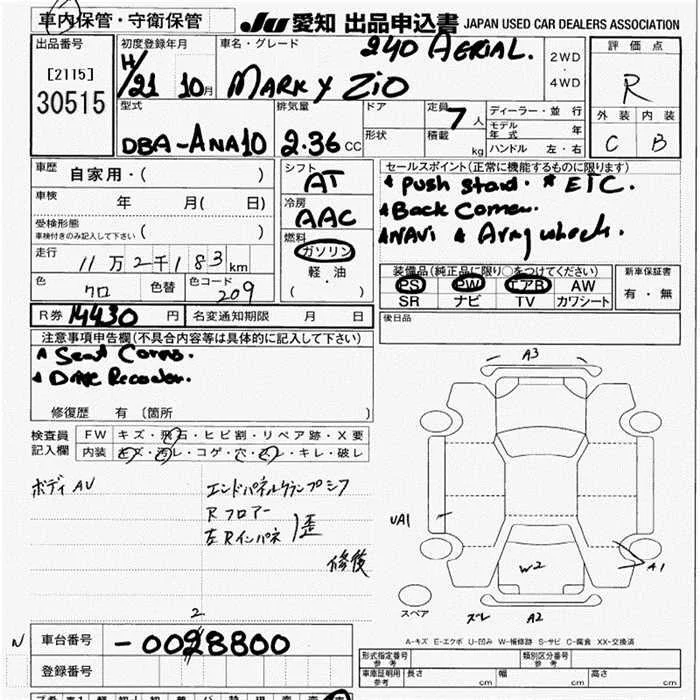 車内保管・守衛保管
JU 愛知 出品申込書 JAPAN USED CAR DEALERS ASSOCIATION
出品番号
[2115]
30515
初度登録年月
H/21 10月
車名・グレード
240 AERIAL.
MARK X ZIO
2WD
・
4WD
評価点
R
外装 内装
C B
型式
DBA-ANA10
排気量
2.36 CC
ドア
形状
定員 7人
積載 kg
ディーラー・並行
モデル年式 年
ハンドル 左・右
車歴 自家用・( )
車検 年 月( 日)
受検形態
車検付きのみ記入して下さい ( )
走行 11万2千183km
色 クロ 色替 色コード 209
シフト AT
冷房 AAC
燃料
ガソリン
軽・油
( )
セールスポイント(正常に機能するものに限ります)
Push start. ETC.
Back
NAVI wheel.
装備品(純正品に限り○をつけてください)
PS PW エアB AW
SR ナビ TV カワシート
新車保証書
有・無
R券 14430円 名変通知期限 月 日
後日品
注意事項申告欄(不具合内容等は具体的に記入して下さい)
Seat
Drive Recorder.
修復歴 有〔箇所 〕
検査員記入欄
FW キズ・飛石・ヒビ割・リペア跡・X要
内装 キズ・汚レ・コゲ・穴・スレ・キレ・破レ
ボディ AU
エンドパネルクランプシワ
Rフロアー
左Rインパネ 歪
修復
A3
UA1
A1
W2
スペア
ズレ A2
A-キズ E-エクボ U-凹み W-補修跡 S-サビ C-腐食 XX-交換済
2
N 車台番号 -0028800
登録番号
形式指定番号 参考
類別区分番号 参考
車庫証明用 参考 長さ cm 幅 cm 高さ cm